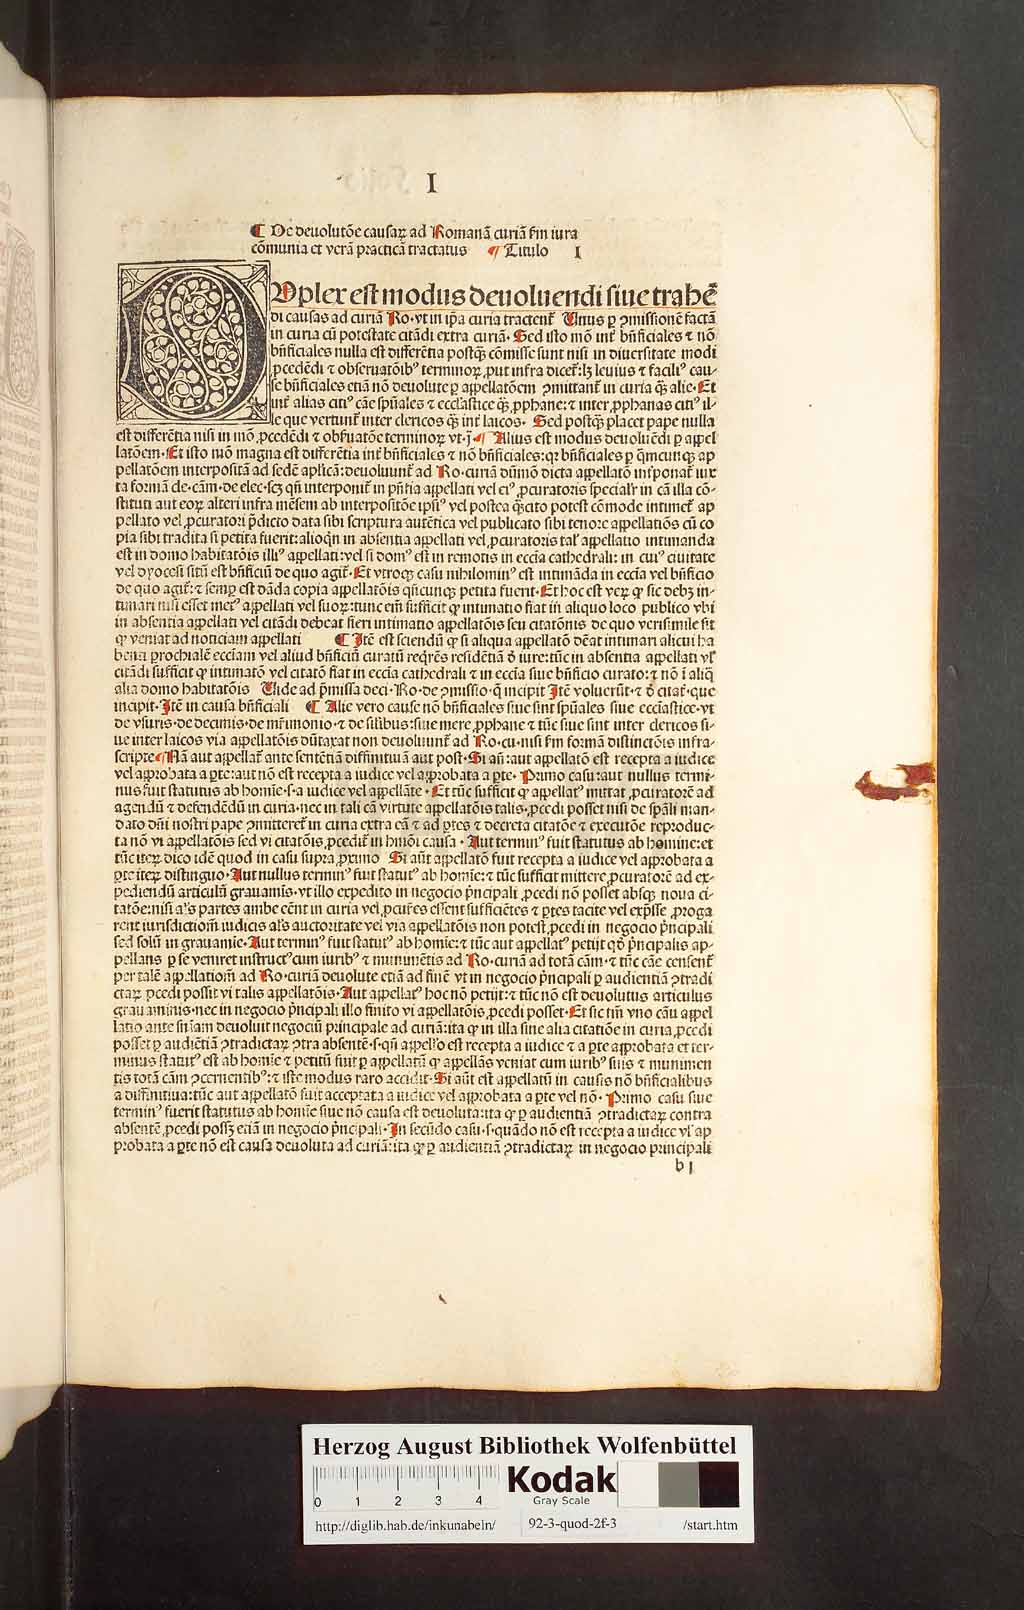 I
¶ De deuolutõe causaꝝ ad Romanã curiã ẽm iura
cõmunia et verã practicã tractatus ¶ Titulo I
Duplex est modus deuoluendi siue trahẽ
di causas ad curiã Ro·vt in ip̃a curia tractent᷑ Unus ꝑ ꝯmissionẽ factã
in curia cũ potestate citãdi extra curiã· Sed isto mõ int᷑ bñficiales ⁊ nõ
bñficiales nulla est differẽtia postq̃ꝫ cõmisse sunt nisi in diuersitate modi
ꝓcedẽdi ⁊ obseruatõibꝰ terminoꝝ ꝓut infra dicet᷑:lꝫ leuius ⁊ faciliꝰ cau-
se bñficiales etiã nõ deuolute ꝑ appellatõem ꝯmittant᷑ in curia q̃ꝫ alie· Et
int᷑ alias citiꝰ cãe spũales ⁊ ecclãstice q̃ꝫ ꝓphane:⁊ inter ꝓphanas citiꝰ il-
le que vertunt᷑ inter clericos q̃ꝫ int᷑ laicos· Sed postq̃ꝫ placet pape nulla
est differẽtia nisi in mõ ꝓcedẽdi ⁊ obf̃uatõe terminoꝝ vt·j̃·¶ Alius est modus deuoluẽdi ꝑ appel
latõem· Et isto mõ magna est differẽtia int᷑ bñficiales ⁊ nõ bñficiales:qꝛ bñficiales ꝑ q̃mcunqꝫ ap
pellatõem interpositã ad sedẽ aplicã:deuoluunt᷑ ad Ro·curiã dũmõ dicta appellatõ int᷑ponat᷑ iux
ta formã cle·cãm·de elec·scꝫ qñ interponit᷑ in p̃ntia appellati vel eiꝰ ꝓcuratoris specialr̃ in cã illa cõ-
stituti aut eoꝝ alteri infra mẽsem ab interpositõe ipsiꝰ vel postea q̃ꝫcito potest cõmode intimet᷑ ap
pellato vel ꝓcuratori p̃dicto data sibi scriptura autẽtica vel publicato sibi tenore appellatiõs cũ co
pia sibi tradita si petita fuerit:alioqñ in absentia appellati vel ꝓcuratoris talꝰ appellatio intimanda
est in domo habitatõis illiꝰ appellati:vel si domꝰ est in remotis in eccĩa cathedrali: in cuiꝰ ciuitate
vel dyocesi sitũ est bñficiũ de quo agit᷑· Et vtroqꝫ casu nihilominꝰ est intimãda in eccĩa vel bñficio
de quo agit᷑:⁊ semꝑ est dãda copia appellatõis qñcunqꝫ petita fuerit· Et hoc est veꝝ ꝙ sic debꝫ in-
timari nisi esset metꝰ appellati vel suoꝝ:tunc em̃ sufficit ꝙ intimatio fiat in aliquo loco publico vbi
in absentia appellati vel citãdi debeat fieri intimatio appellatõis seu citatõnis de quo verisimile sit
ꝙ veniat ad noticiam appellati ¶ Itẽ est sciendũ ꝙ si aliqua appellatõ dẽat intimari alicui ha
benti ꝑrochialẽ eccĩam vel aliud bñficiũ curatũ req̃rẽs residẽtiã ð iure:tũc in absentia appellati vl̃
citãdi sufficit ꝙ intimatõ vel citatõ fiat in eccĩa cathedrali ⁊ in eccĩa siue bñficio curato:⁊ nõ ĩ aliq̃
alia domo habitatõis Uide ad p̃missa deci·Ro·de ꝯmissio·q̃ incipit Itẽ voluerũt·⁊ ð citat᷑·que
incipit·Itẽ in causa bñficiali ¶ Alie vero cause nõ bñficiales siue sint spũales siue ecclãstice·vt
de vsuris·de decimis·de mr̃imonio·⁊ de silibus:siue mere ꝓphane ⁊ tũc siue sint inter clericos si-
ue inter laicos via appellatõis dũtaxat non deuoluunt᷑ ad Ro·cu·nisi ẽm formã distinctõis infra-
scripte ¶ Nã aut appellat᷑ ante sentẽtiã diffinitiuã aut post· Si añ:aut appellatõ est recepta a iudice
vel approbata a ꝑte:aut nõ est recepta a iudice vel approbata a ꝑte· Primo casu:aut nullus termi-
nus fuit statutus ab homĩe·s·a iudice vel appellãte· Et tũc sufficit ꝙ appellatꝰ mittat ꝓcuratorẽ ad
agendũ ⁊ defendẽdũ in curia·nec in tali cã virtute appellatõis talis ꝓcedi posset nisi de spãli man-
dato dñi nostri pape ꝯmitteret᷑ in curia extra eã ⁊ ad ꝑtes ⁊ decreta citatõe ⁊ executõe reproduc-
ta nõ vi appellatõis sed vi citatõis ꝓcedit᷑ in hmõi causa· Aut terminꝰ fuit statutus ab homine:et
tũc iteꝝ dico idẽ quod in casu supra ꝓximo Si aũt appellatõ fuit recepta a iudice vel approbata a
ꝑte iteꝝ distinguo· Aut nullus terminꝰ fuit statutꝰ ab homĩe:⁊ tũc sufficit mittere ꝓcuratorẽ ad ex-
pediendũ articulũ grauamĩs·vt illo expedito in negocio p̃ncipali ꝓcedi nõ posset absqꝫ noua ci-
tatõe:nisi al's partes ambe eẽnt in curia vel ꝓcur̃es essent sufficiẽtes ⁊ ꝑtes tacite vel exp̃sse ꝓroga
rent iurisdictiom̃ iudicis al's auctoritate vel via appellatõis non potest ꝓcedi in negocio p̃ncipali
sed solũ in grauamĩe· Aut terminꝰ fuit statutꝰ ab homĩe:⁊ tũc aut appellatꝰ petijt qð p̃ncipalis ap-
pellans ꝑ se veniret instructꝰ cum iuribꝰ ⁊ munimẽtis ad Ro·curiã ad totã cãm·⁊ tũc cãe censent᷑
per talẽ appellatiom̃ ad Ro·curiã deuolute etiã ad finẽ vt in negocio p̃ncipali ꝑ audientiã ꝯtradi
ctaꝝ ꝓcedi possit vi talis appellatõis· Aut appellatꝰ hoc nõ petijt:⁊ tũc nõ est deuolutus articulus
grauaminis·nec in negocio p̃ncipali illo finito vi appellatõis ꝓcedi posset· Et sic tm̃ vno cãu appel
latio ante sñiam deuoluit negociũ principale ad curiã:ita ꝙ in illa sine alia citatiõe in curia ꝓcedi
posset ꝑ audiẽtiã ꝯtradictaꝝ ꝯtra absentẽ·s·qñ appell'o est recepta a iudice ⁊ a ꝑte approbata et ter-
minus statutꝰ est ab homĩe ⁊ petitũ fuit ꝑ appellatũ ꝙ appellãs veniat cum iuribꝰ suis ⁊ munimen
tis totã cãm ꝯcernentibꝰ:⁊ iste modus raro accidit· Si aũt est appellatũ in causis nõ bñficialibus
a diffinitiua:tũc aut appellatõ fuit acceptata a iudice vel approbata a ꝑte vel nõ· Primo casu siue
terminꝰ fuerit statutus ab homĩe siue nõ causa est deuoluta:ita ꝙ ꝑ audientiã ꝯtradictaꝝ contra
absentẽ ꝓcedi possꝫ etiã in negocio p̃ncipali· In secũdo casu·s·quãdo nõ est recepta a iudice vl̃ ap
probata a ꝑte nõ est causa deuoluta ad curiã:ita ꝙ ꝑ audientiã ꝯtradictaꝝ in negocio principali
b j
Herzog August Bibliothek Wolfenbüttel
0 1 2 3 4
Kodak
Gray Scale
http://diglib.hab.de/inkunabeln/ 92-3-quod-2f-3 /start.htm